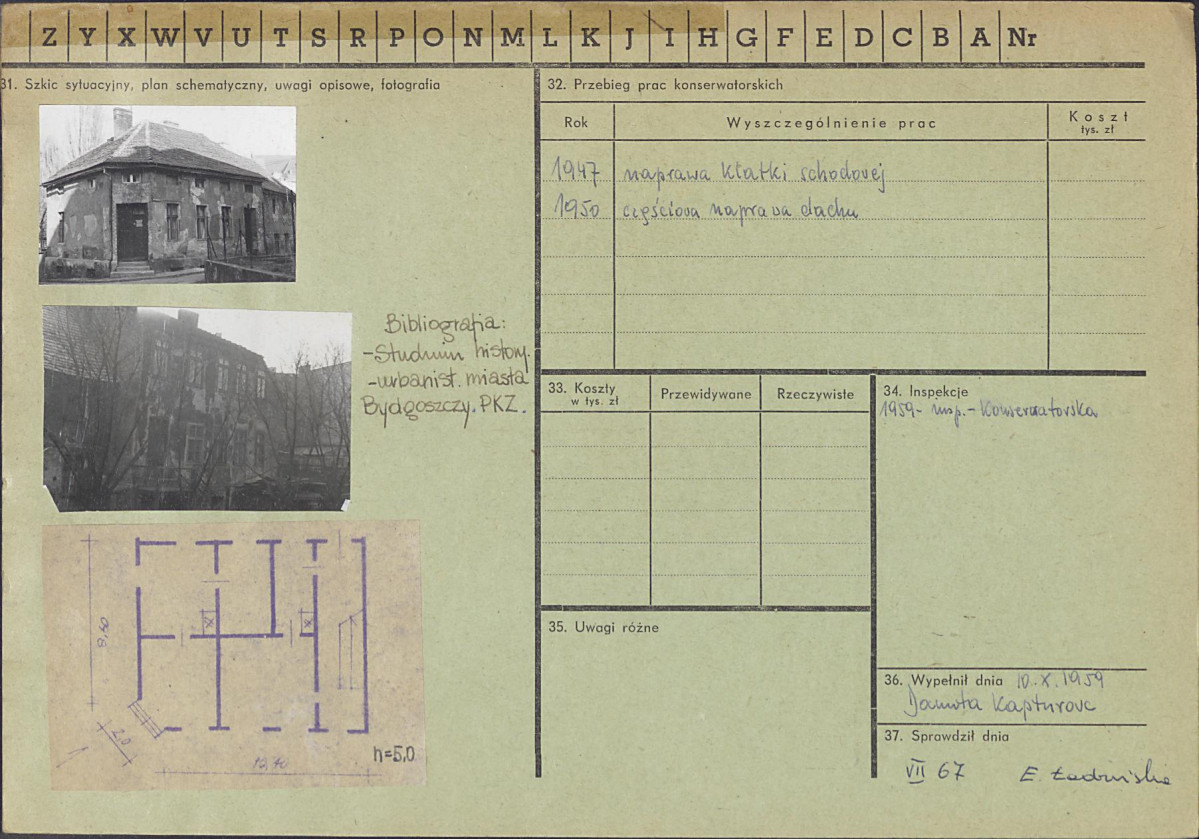 Z Y X W V U T S R P O N M L K J I H G F E D C B A Nr
31. Szkic sytuacyjny, plan schematyczny, uwagi opisowe, fotografia
Bibliografia:
-Studium histor.
-urbanist. miasta
Bydgoszczy. PKZ.
8,40
2,0
12,40
h=5,0
32. Przebieg prac konserwatorskich
Rok
Wyszczególnienie prac
Koszt
tys. zł
1947 naprawa klatki schodowej
1950 częściowa naprawa dachu
33. Koszty
w tys. zł
Przewidywane
Rzeczywiste
34. Inspekcje
1959 - insp. - Konserwatorska
35. Uwagi różne
36. Wypełnił dnia 10.X.1959
Danuta
37. Sprawdził dnia
VII 67 E.